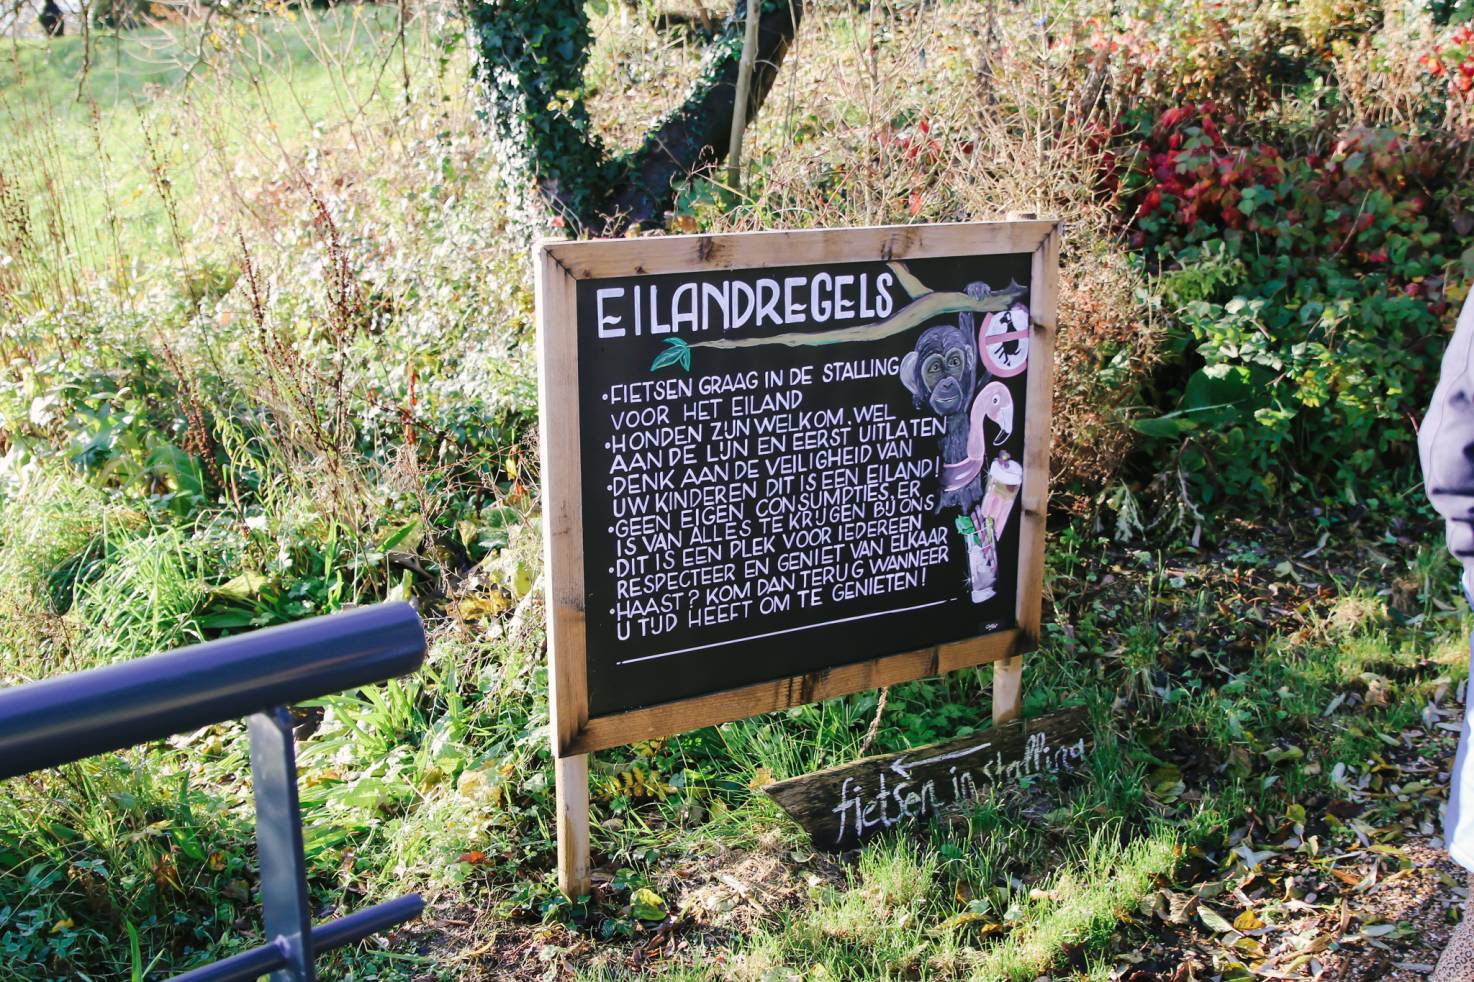 EILANDREGELS
•FIETSEN GRAAG IN DE STALLING
VOOR HET EILAND
•HONDEN ZIJN WELKOM, WEL
AAN DE LIJN EN EERST UITLATEN
•DENK AAN DE VEILIGHEID VAN
UW KINDEREN DIT IS EEN EILAND!
•GEEN EIGEN CONSUMPTIES, ER
IS VAN ALLES TE KRIJGEN BIJ ONS
•DIT IS EEN PLEK VOOR IEDEREEN,
RESPECTEER EN GENIET VAN ELKAAR
•HAAST? KOM DAN TERUG WANNEER
U TIJD HEEFT OM TE GENIETEN!
fietsen in stalling